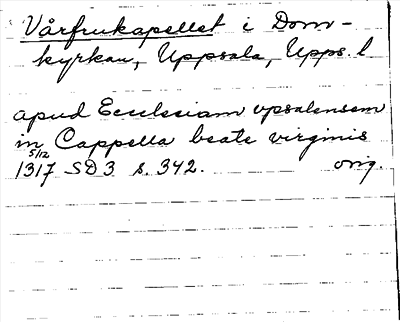 Vårfrukapellet i Dom-
kyrkan, Uppsala, Upps. l
apud Ecclesiam vpsalensem
in Cappella beate virginis
5/12
1317 SD3 s. 342. orig.